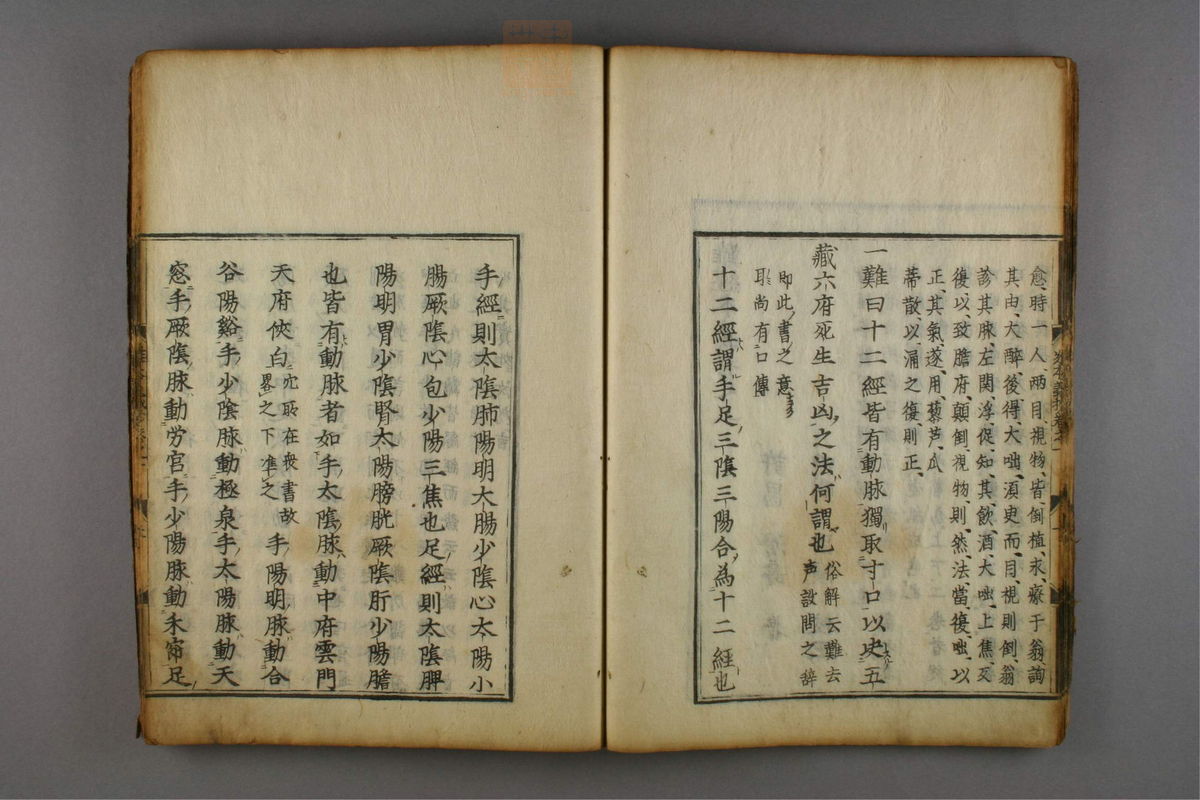 愈時一人兩目視物皆倒植求療于翁詢
其由大醉後得大吐須臾而目視則倒翁
診其脉左関浮促知其飲酒大吐上焦反
復以致膽府顛倒視物則然法當復吐以
正其氣遂用藜芦瓜
蒂散以涌之復則正
一難曰十二經皆有動脉獨取寸口以决五
藏六府死生吉凶之法何謂也俗解云難去
声設問之辞
即此書之意
耴尚有口傳
十二經謂手足三陰三陽合為十二經也
手經則太陰肺陽明大腸少陰心太陽小
腸厥陰心包少陽三焦也足經則太陰脾
陽明胃少陰腎太陽膀胱厥陰肝少陽膽
也皆有動脉者如手太陰脉動中府雲門
天府俠白穴耴在衆書故
畧之下凖之手陽明脉動合
谷陽谿手少陰脉動極泉手太陽脉動天
窓手厥陰脉動労宮手少陽脉動禾窌足